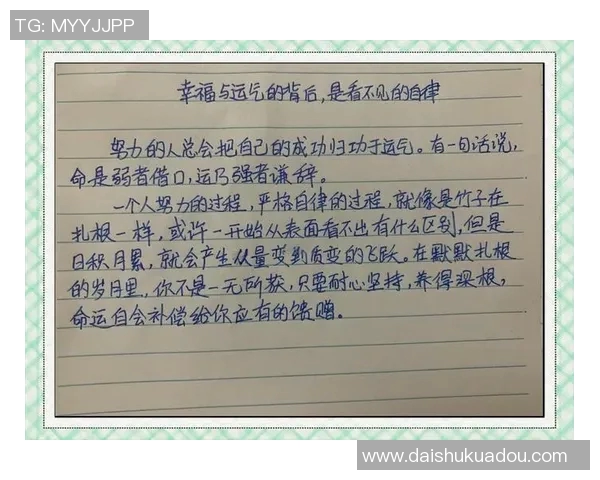 TG: MYYJJPP
幸福与运气的背后,是看不见的自律
努力的人总会把自己的成功归功于运气。有一句话说,
命是弱者借口,运乃强者谦辞。
一个人努力的过程,严格自律的过程,就像是竹子在
扎根一样,或许一开始从表面看不出有什么区别,但是
日积月累,就会产生从量变到质变的飞跃。在默默扎根
的岁月里,你不是一无所获,只要耐心坚持,养得深根,
命运自会补偿给你应有的馈赠。
www.daishukuadou.com